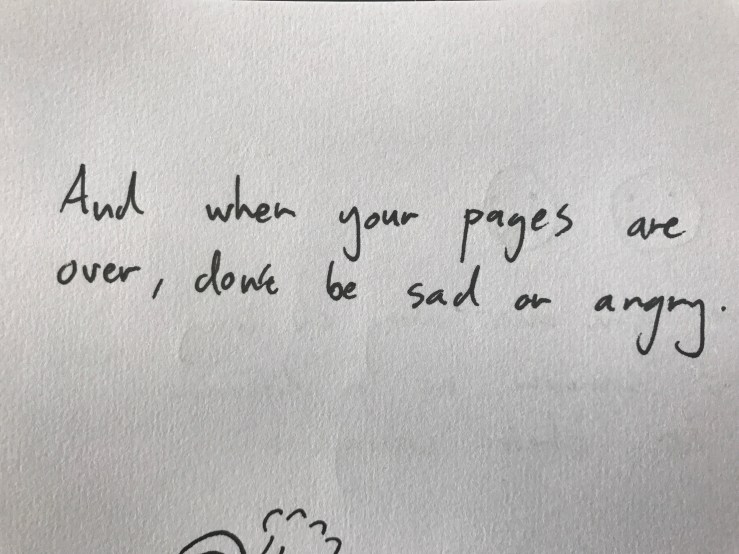 And when your pages are
over, don't be sad or angry.